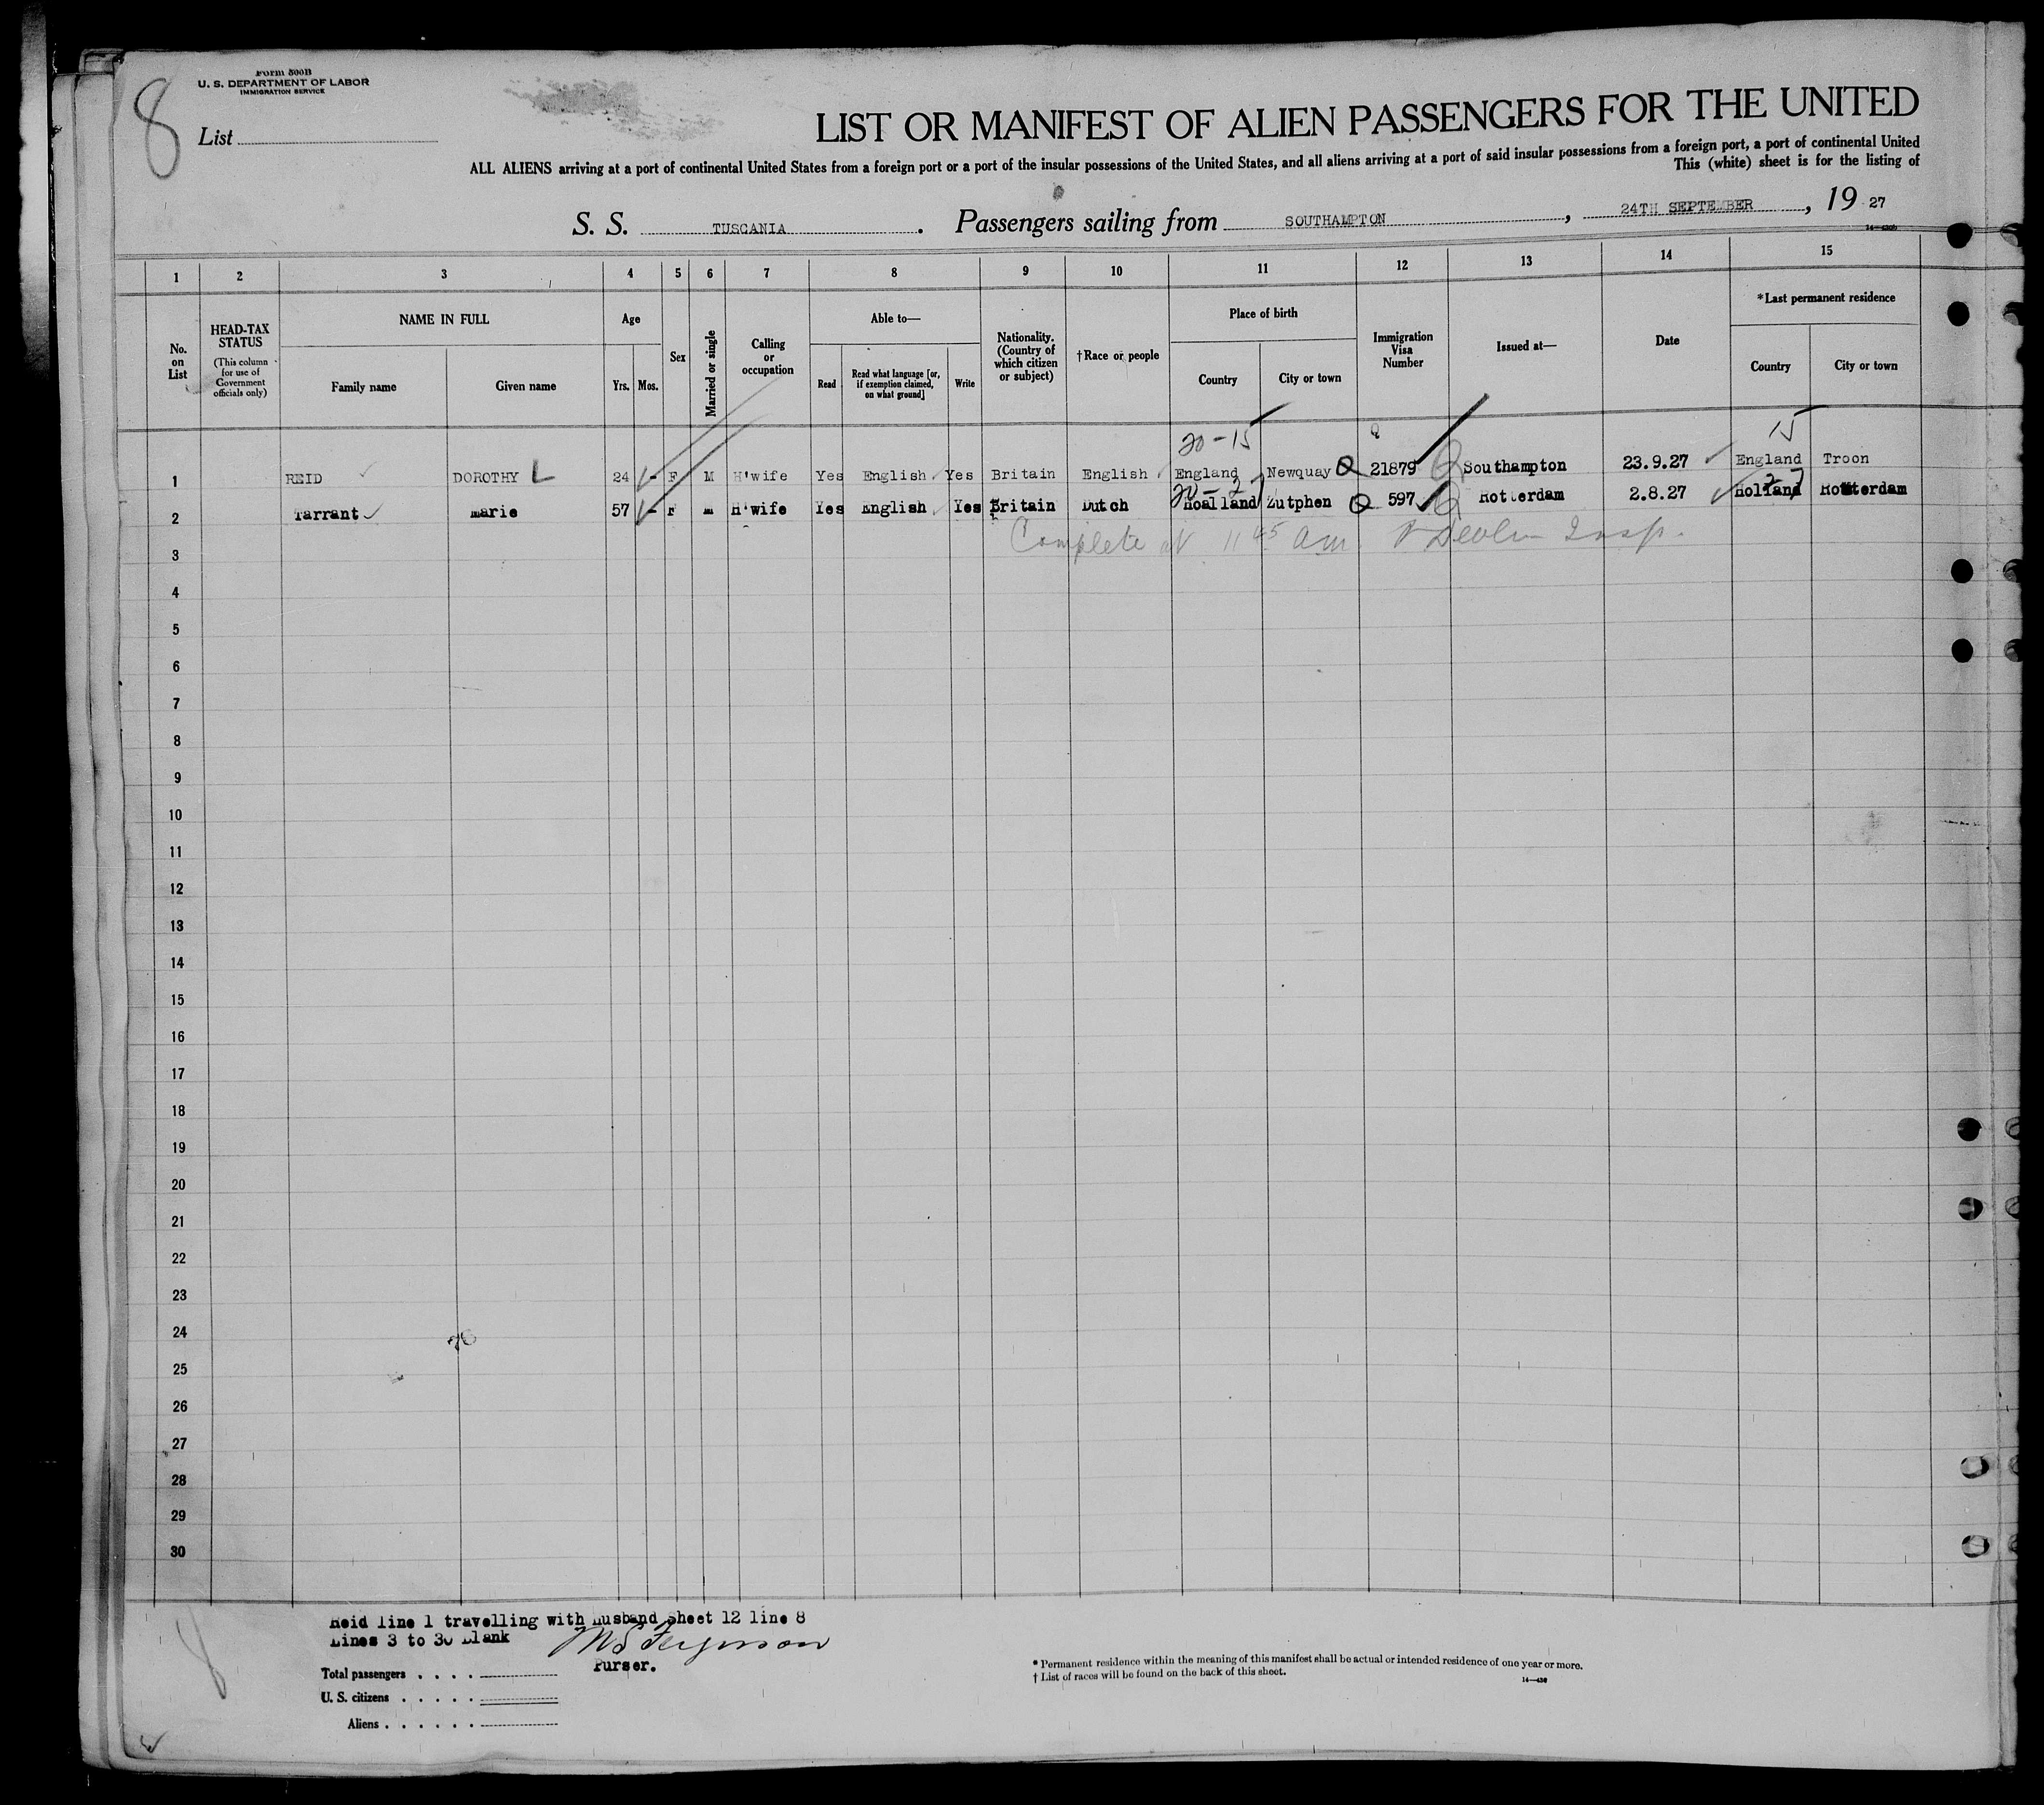 8
Form 500B
U. S. DEPARTMENT OF LABOR
IMMIGRATION SERVICE
List
LIST OR MANIFEST OF ALIEN PASSENGERS FOR THE UNITED
ALL ALIENS arriving at a port of continental United States from a foreign port or a port of the insular possessions of the United States, and all aliens arriving at a port of said insular possessions from a foreign port, a port of continental United
This (white) sheet is for the listing of
S. S. TUSCANIA. Passengers sailing from SOUTHAMPTON, 24TH SEPTEMBER, 19 27
1 2 3 4 5 6 7 8 9 10 11 12 13 14 15
No. on List
HEAD-TAX STATUS (This column for use of Government officials only)
NAME IN FULL
Family name Given name
Age
Yrs. Mos.
Sex
Married or single
Calling or occupation
Able to—
Read Read what language [or, if exemption claimed, on what ground] Write
Nationality. (Country of which citizen or subject)
†Race or people
Place of birth
Country City or town
Immigration Visa Number
Issued at—
Date
*Last permanent residence
Country City or town
20-15 Q 15
1 REID DOROTHY L 24 - F M H'wife Yes English Yes Britain English England Newquay Q 21879 Southampton 23.9.27 England Troon
2 Tarrant marie 57 - F m H'wife Yes English Yes Britain Dutch Hoalland Zutphen Q 597 Rotterdam 2.8.27 Holland Rotterdam
Complete at 11 45 am. Devlin Insp.
3
4
5
6
7
8
9
10
11
12
13
14
15
16
17
18
19
20
21
22
23
24
25
26
27
28
29
30
Reid line 1 travelling with husband sheet 12 line 8
Lines 3 to 30 blank
M S Ferguson
Purser.
Total passengers . . . .
U. S. citizens . . . . .
Aliens . . . . . .
* Permanent residence within the meaning of this manifest shall be actual or intended residence of one year or more.
† List of races will be found on the back of this sheet.
8